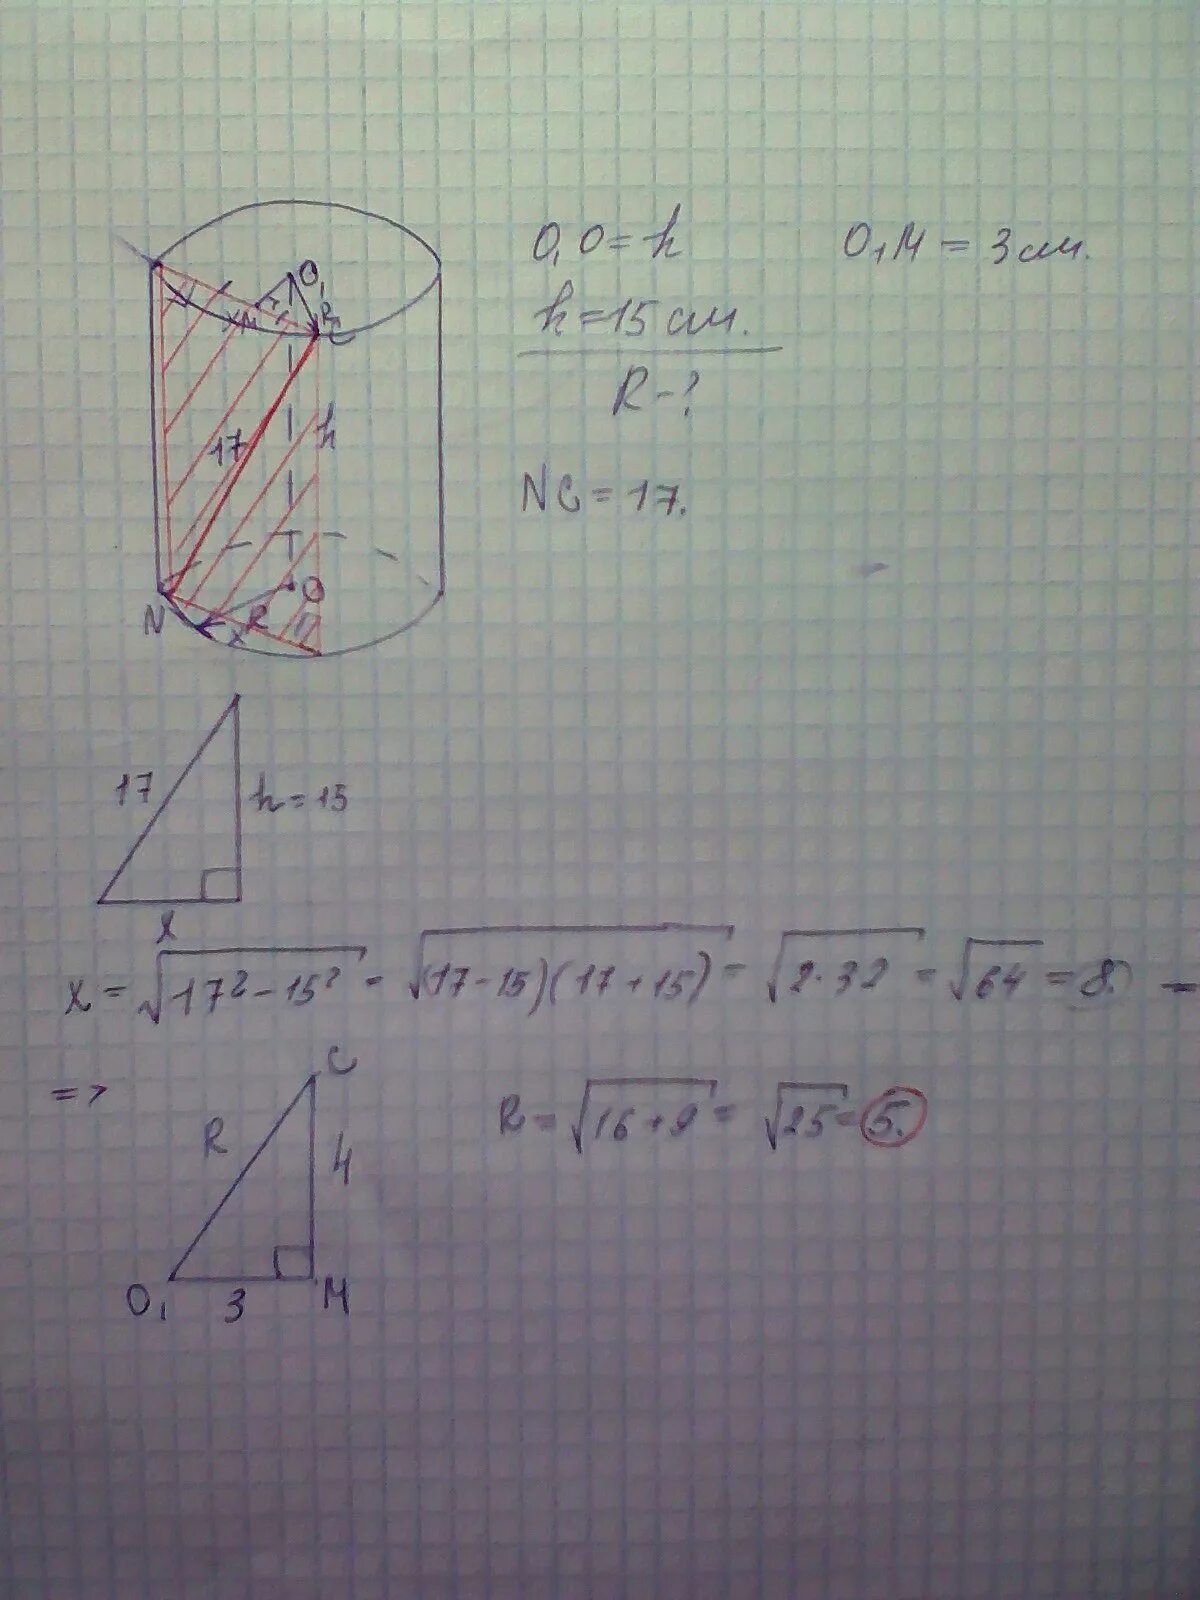 O₁O = h
O₁M = 3 см.
h = 15 см.
R - ?
NC = 17.
O₁
M
R
C
17
h
O
N
R
x
17
h = 15
x
x = √(17² - 15²) = √((17 - 15)(17 + 15)) = √(2 · 32) = √64 = 8. =
=>
C
R
4
O₁
3
M
R = √(16 + 9) = √25 = 5.